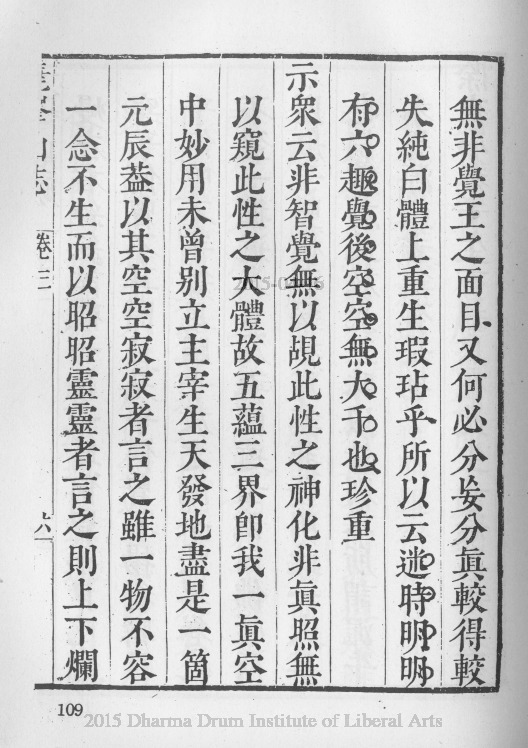 無非覺王之面目又何必分妄分眞較得較
失純白體上重生瑕玷乎所以云迷時明明
有六趣覺後空空無大千也珍重
示衆云非智覺無以覘此性之神化非眞照無
以窺此性之大體故五蘊三界卽我一眞空
中妙用未曾别立主宰生天發地盡是一箇
元辰葢以其空空寂寂者言之雖一物不容
一念不生而以昭昭靈靈者言之則上下爛
山志 卷三 六
109
2015 Dharma Drum Institute of Liberal Arts